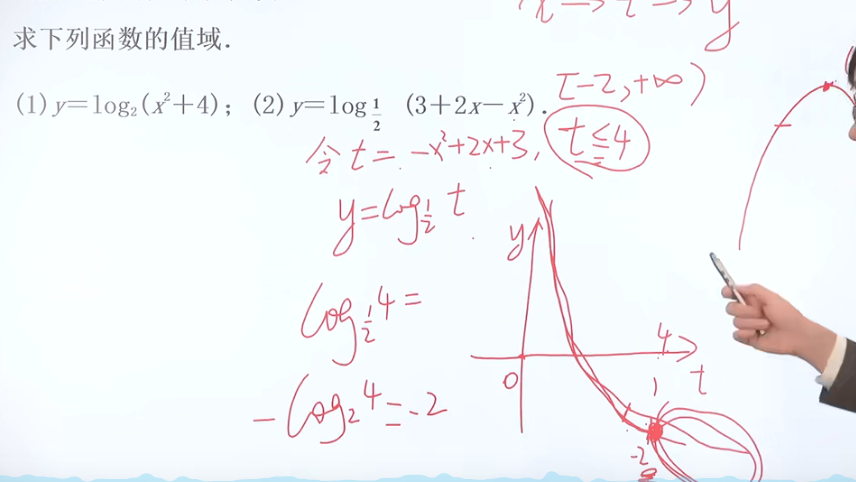 x→t→y
求下列函数的值域.
[-2,+∞)
(1) y=log₂(x²+4); (2) y=log½ (3+2x−x²).
令 t=-x²+2x+3, t≤4
y=log½ t
y
log½ 4=
4
0
t
-log₂ 4=-2
-2